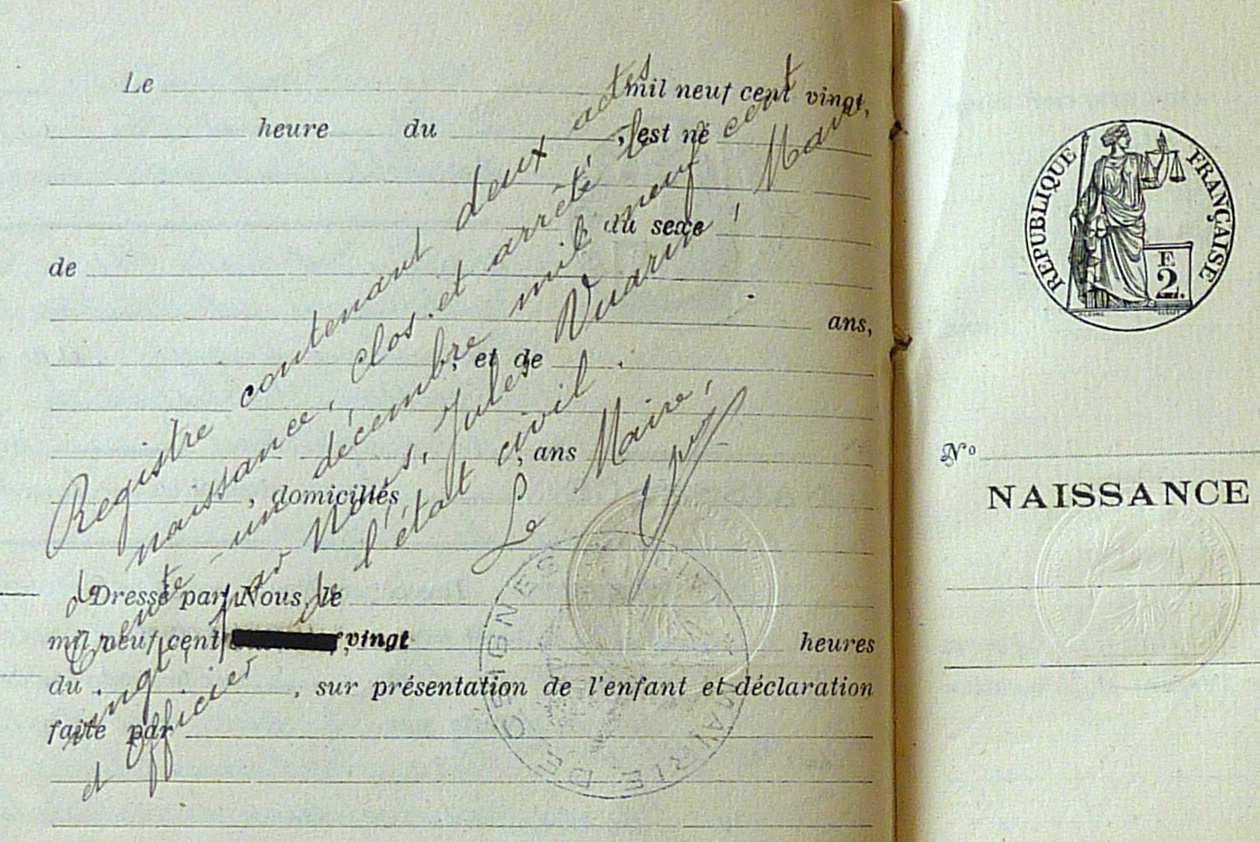 Le mil neuf cent vingt,
heure du , est né
du sexe
de
ans,
, et de
, ans
, domiciliés
Dressé par Nous, le
mil neuf cent vingt heures
du , sur présentation de l'enfant et déclaration
faite par
Registre contenant deux actes
de naissance, clos et arrêté le
trente-un décembre mil neuf cent
vingt, par Nous, Jules Vuarin, Maire,
et officier de l'état civil.
Le Maire,
MAIRIE DE COSIGNES
RÉPUBLIQUE FRANÇAISE
E
2.
No
NAISSANCE